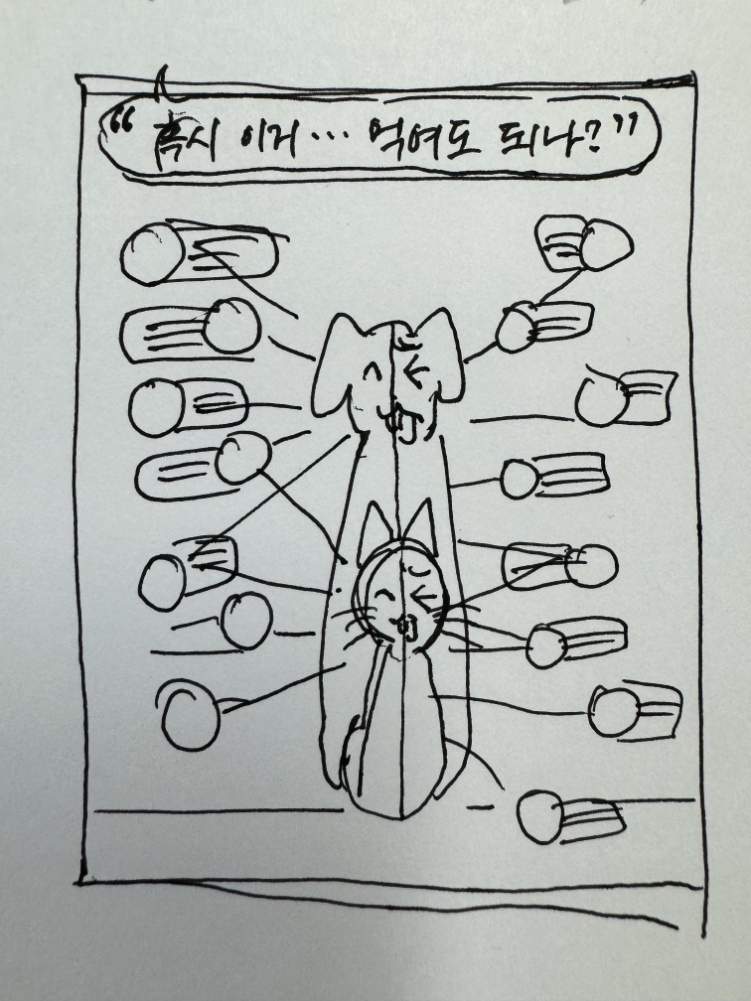 “혹시 이거... 먹여도 되나?”